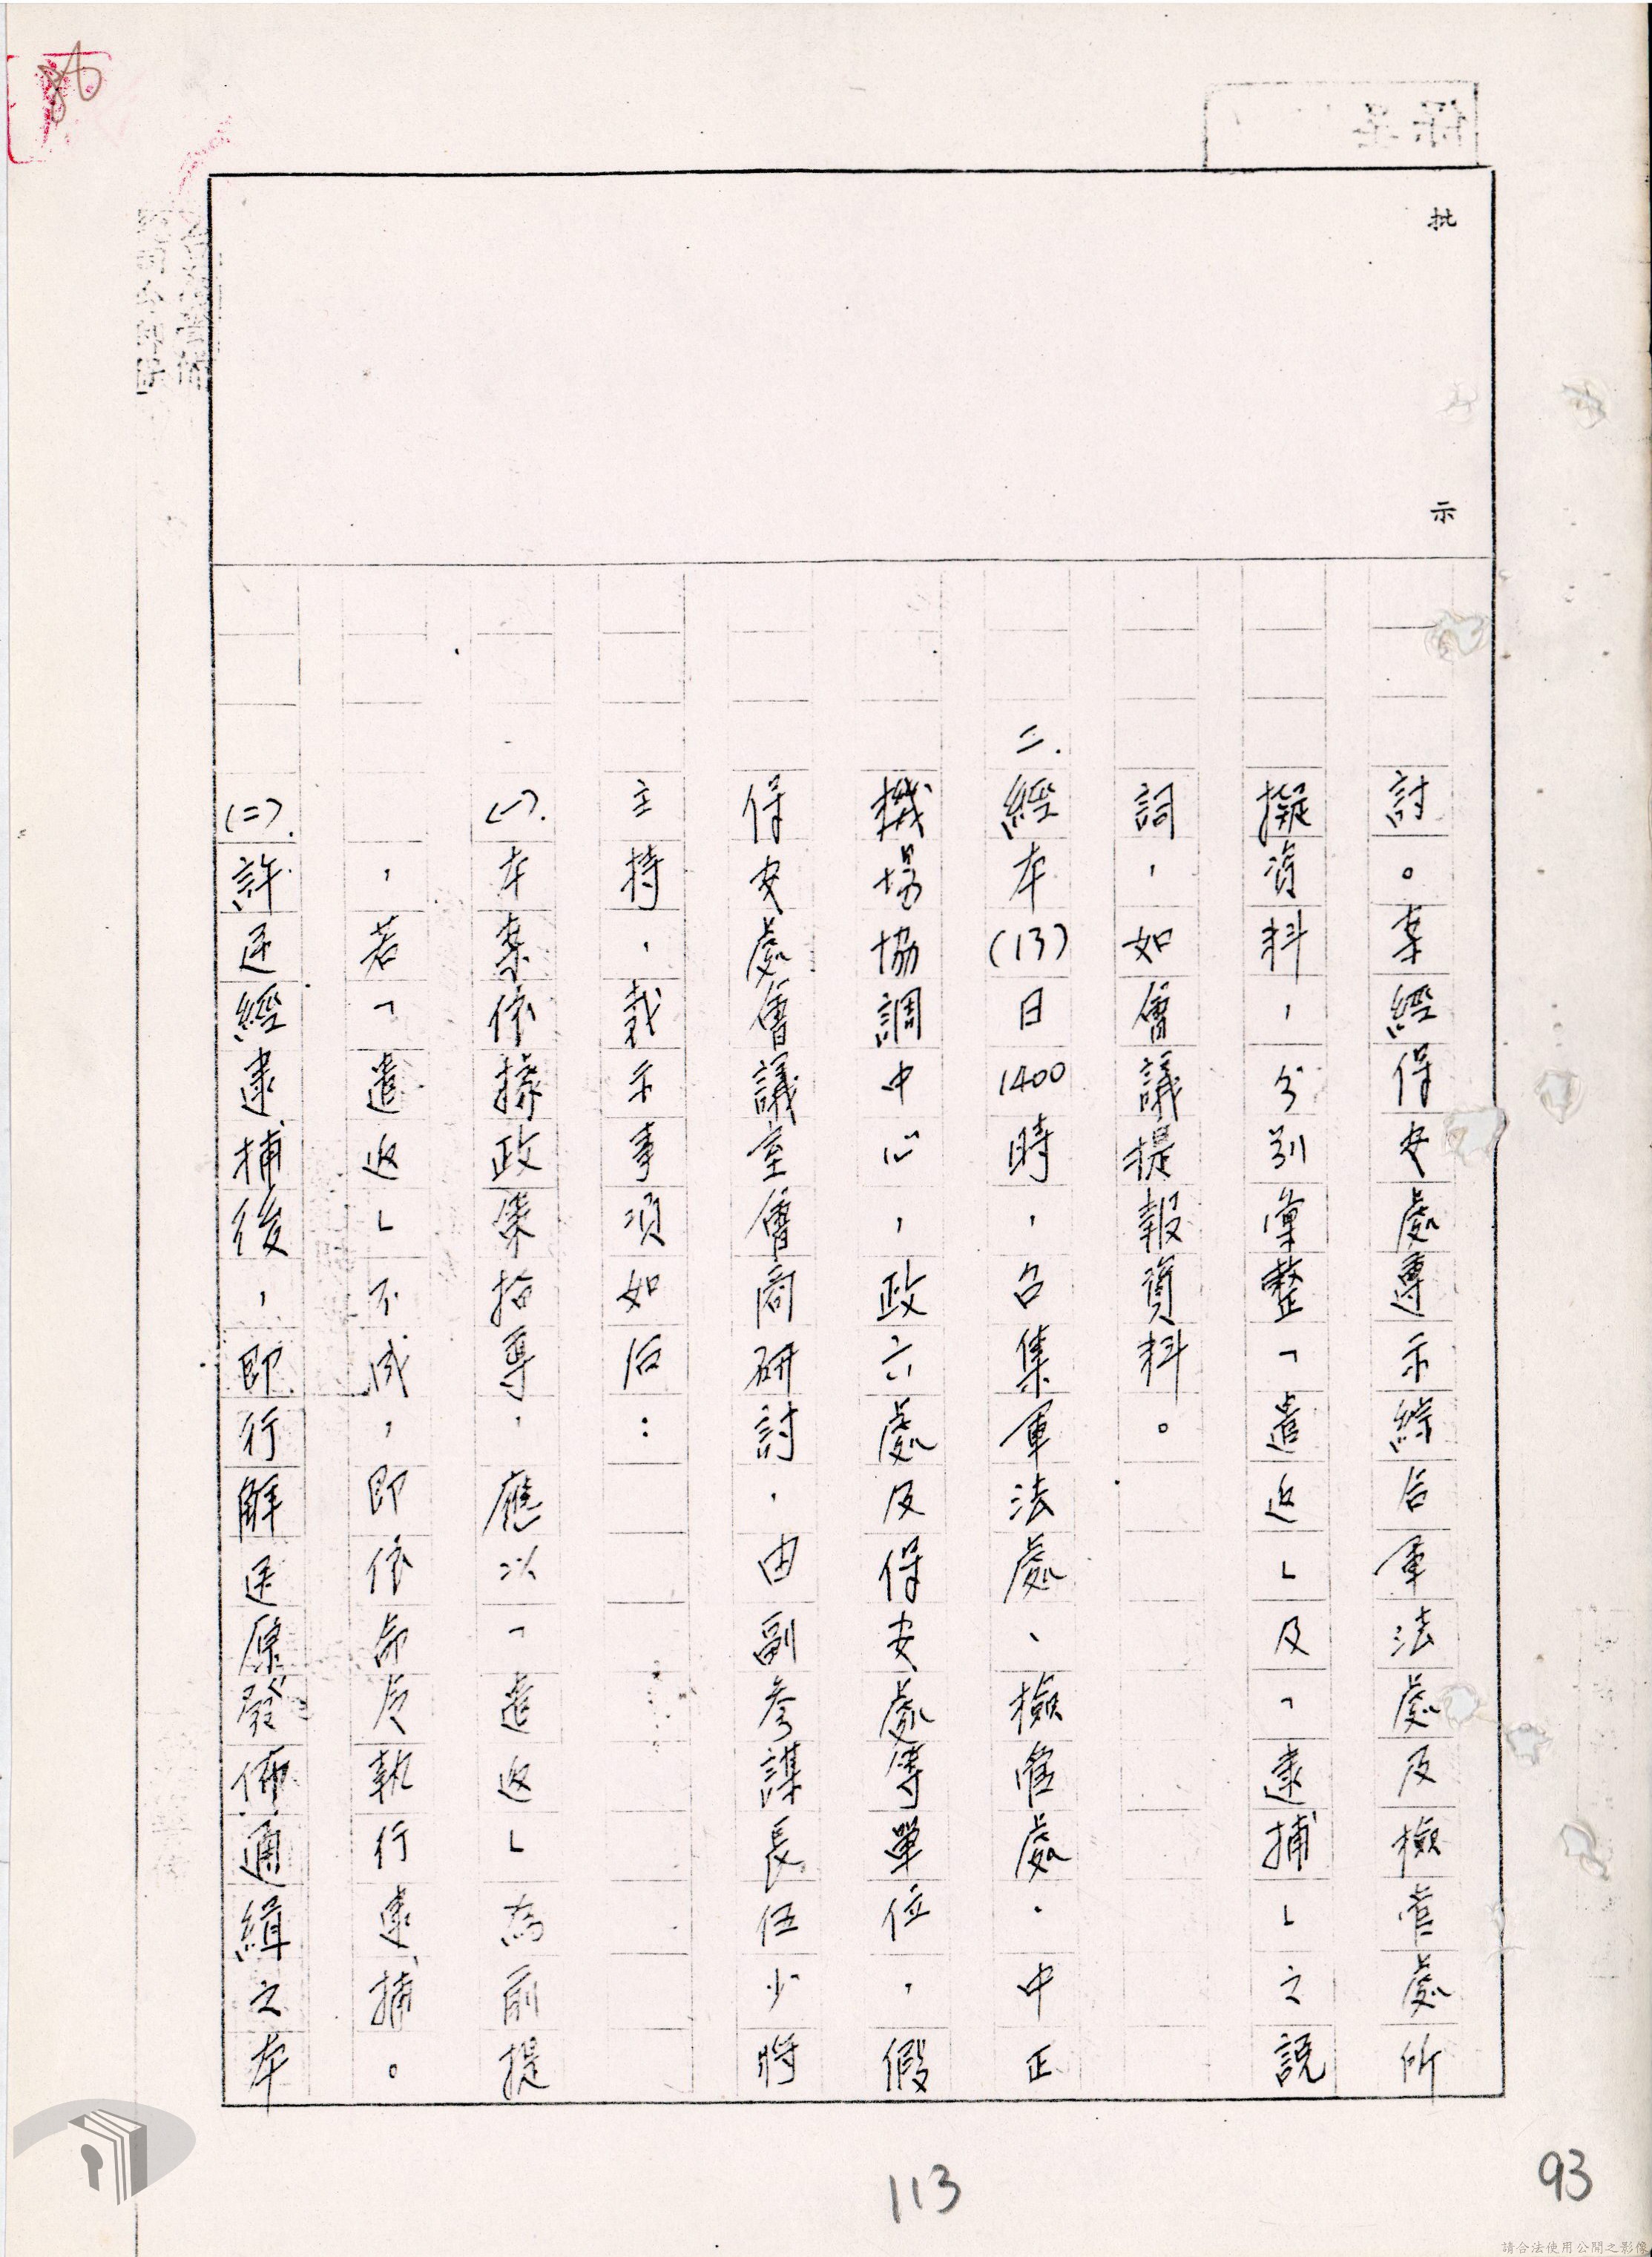 批示
討。案經保安處遵示綜合軍法處及檢管處所
擬資料，分別彙整「遣返」及「逮捕」之說
詞，如會議提報資料。
二.經本(13)日1400時，召集軍法處、檢管處、中正
機場協調中心，政六處及保安處等單位，假
保安處會議室會商研討，由副參謀長伍少將
主持，裁示事項如后：
(一).本案依據政策指導，應以「遣返」為前提
，若「遣返」不成，即依命令執行逮捕。
(二).許逆經逮捕後，即行解送原發佈通緝之本
113
93
請合法使用公開之影像